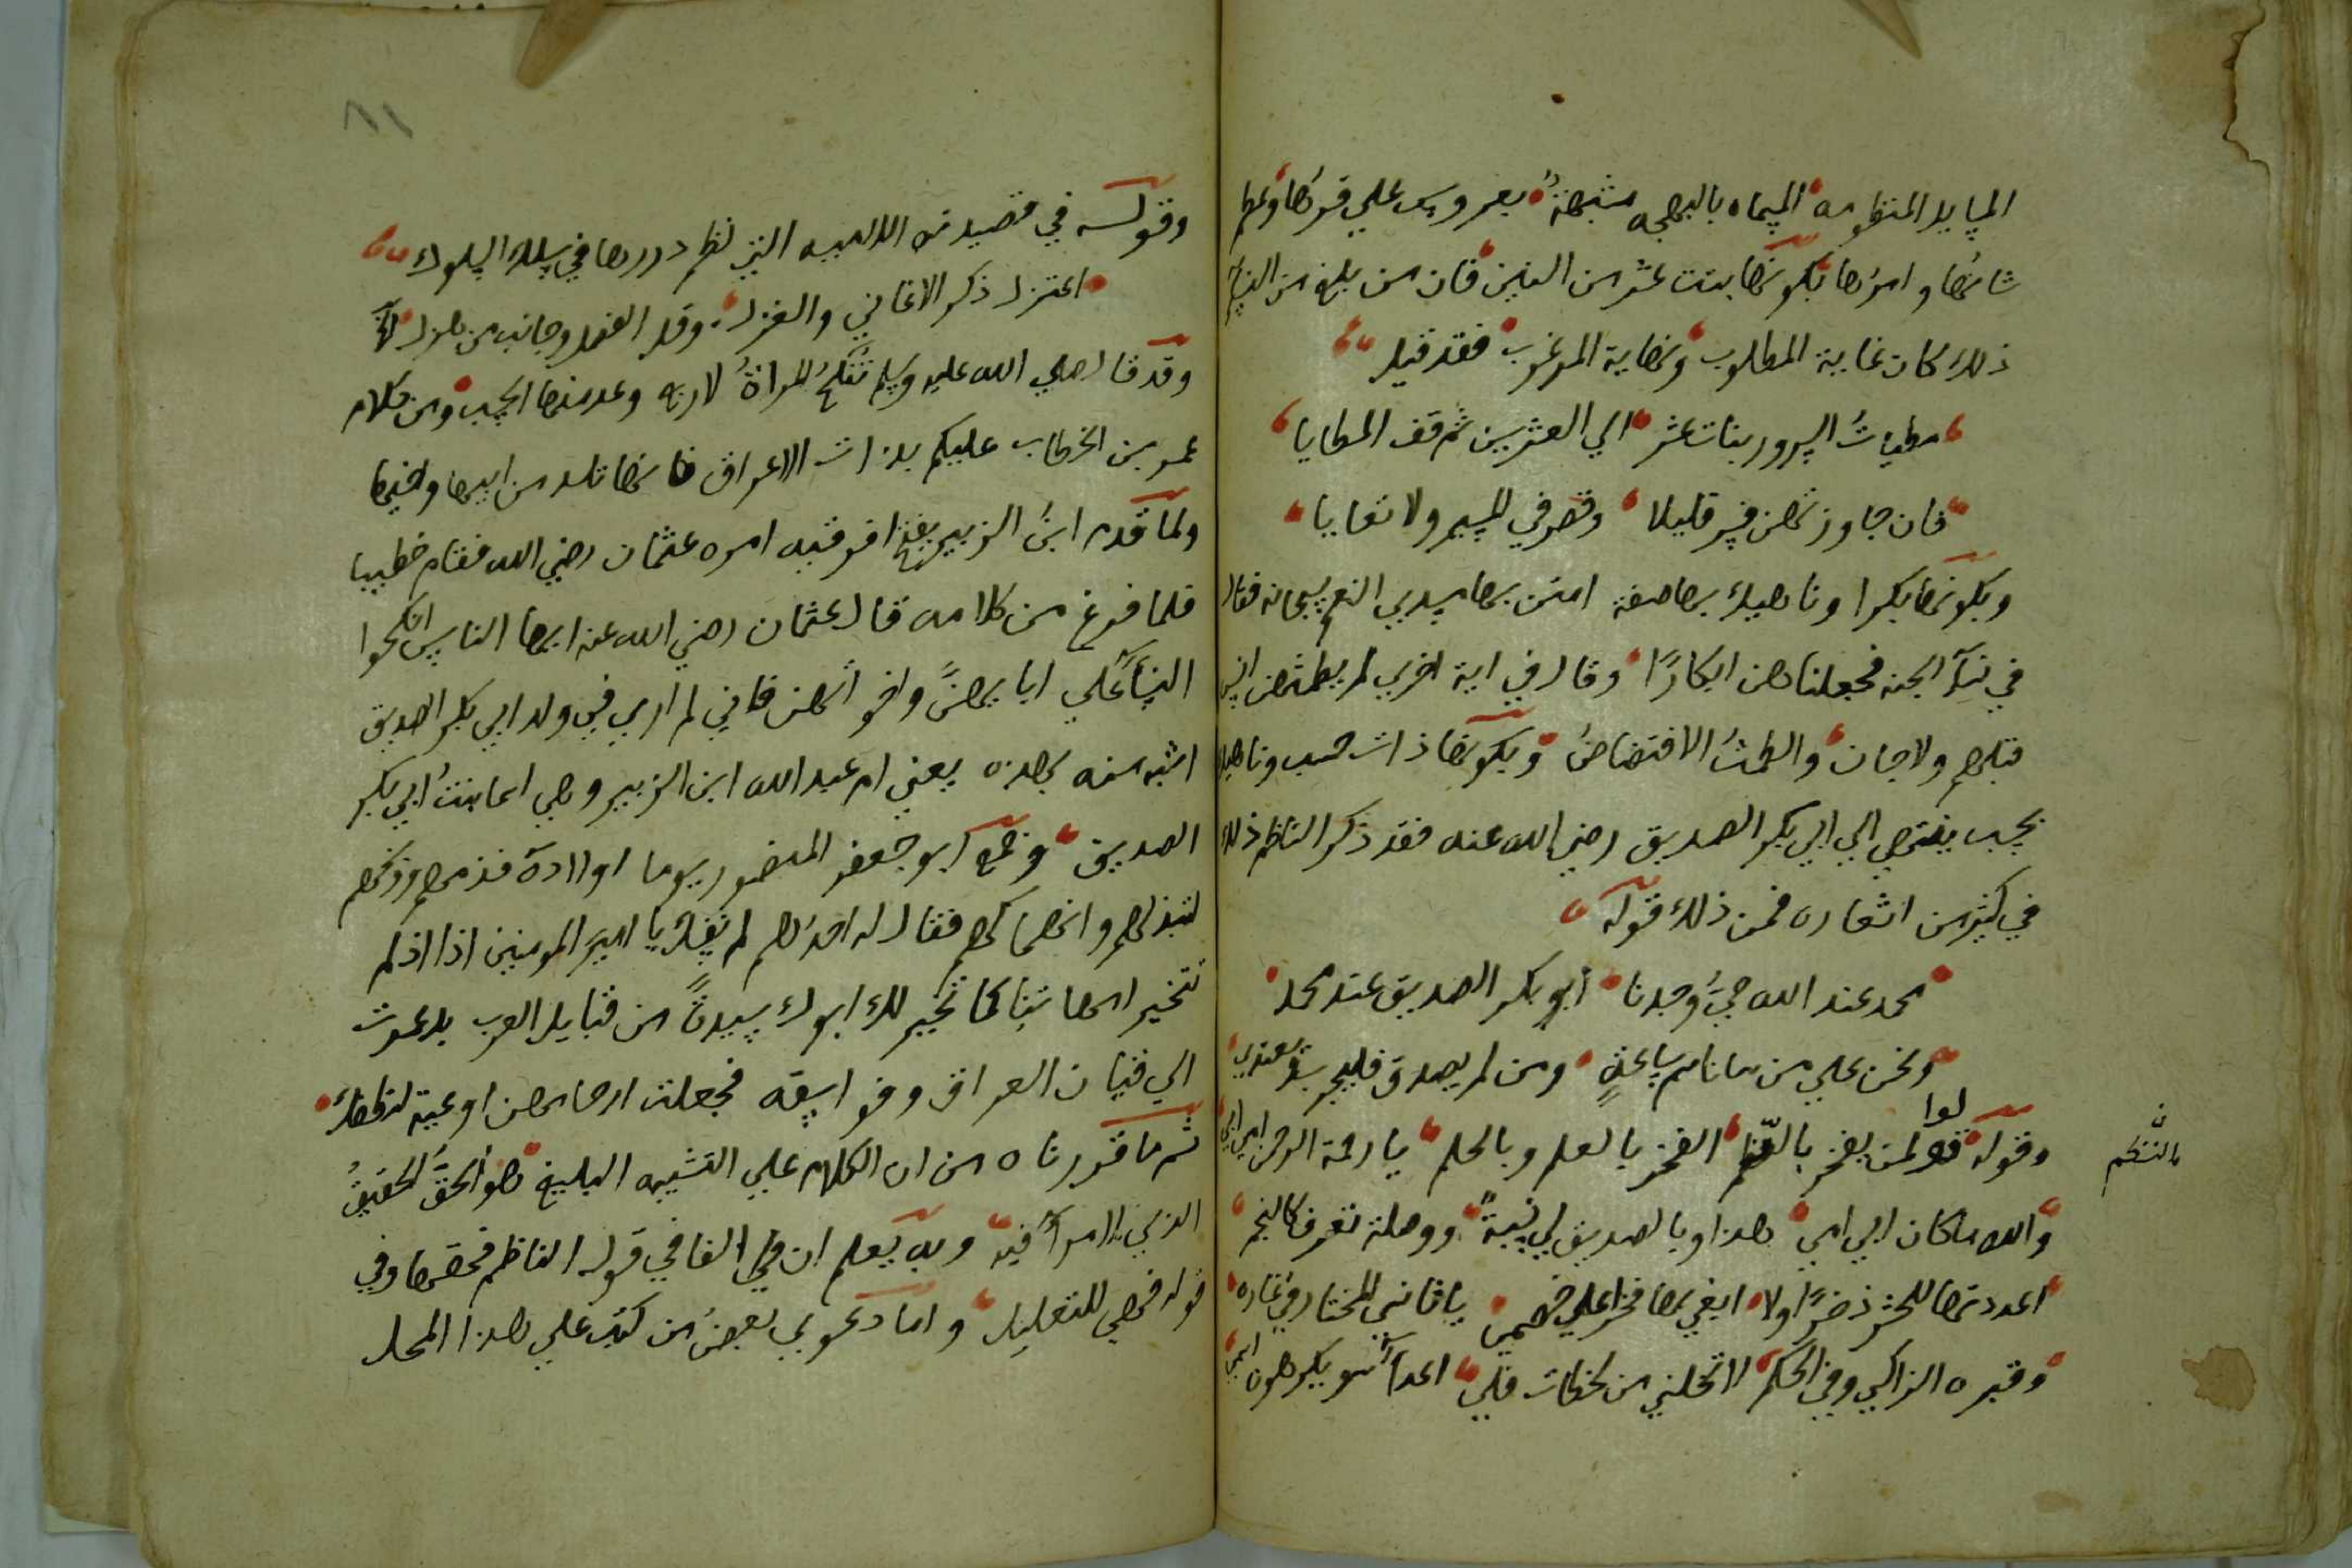 المسايل المنظومه المسماه بالبهجه مشبهة بعروس علي قربها وعظم
شانها وامرها بكونها بنت عشر من السنين فان من بلغ من النساء
ذلك كان غاية المطلوب ونهاية المرغوب فقد قيل
مطيات السرور بنات عشر الي العشرين ثم قف المطايا
فان جاوزتهن فسر قليلا وقصر في المسير ولا تعايا
وبكونها بكرا وناهيك بها صفة امتن بها سدي النعم سبحانه فقال
في نسآ الجنه فجعلناهن ابكارًا وقال في اية اخري لم يطمثهن انس
قبلهم ولا جان والطمث الافتضاض وبكونها ذات حسب وناهيك
بحسب ينتهي الي ابي بكر الصديق رضي الله عنه فقد ذكر الناظم ذلك
في كثير من اشعاره فمن ذلك قوله
محمد عند الله حيّ وجدنا ابو بكر الصديق عند محمد
ونحن علي من ساعدٍ ومن لم يصدق فليجرب ويعتدي
وقوله قولوا لمن يفخر بالنظم الفخر بالعلم وبالحلم يا رحمة الرحمن امي ابي
بالنظم ن
والله ما كان ابي امي هذا وبالصديق لي نسبة ووصلة تعرف كالنجم
اعددتها للحشر ذخرًا ولا ابغي بها فخرا علي خصمي ياثاني المختار في غاره
وقبره الزاكي وفي الحكم لا تخلني من لحظات فلي اعدآ سو يكرهون اسمي
وقوله في قصيدته اللاميه التي نظم دررها في سلك السلوك
اعتزل ذكر الاغاني والغزل وقل الفصل وجانب من هزل
وقد قال صلي الله عليه وسلم تنكح المراة لاربع وعد منها الحسب ومن كلام
عمر بن الخطاب عليكم بذات الاعراق فانها تلد من ابيها واخيها
ولما قدم ابن الزبير بفتح افرقيه امره عثمان رضي الله فقام خطيبا
فلما فرغ من كلامه قال عثمان رضي الله عنه ايها الناس انكحوا
النسآ علي ابايهن واخواتهن فاني لم ار في ولد ابي بكر الصديق
اشبه منه بهذه يعني ام عبد الله ابن الزبير وهي اسما بنت ابي بكر
الصديق وجمع ابو جعفر المنصور يوما اولاده فذمهم
لتبذلهم وانهماكهم فقال له احدهم لم يا امير المومنين اذا اذ لم
تتخير امهاتنا كما تخير لك ابوك سيدة من قبايل العرب بل عمدت
الي قيان العراق وفواسقه فجعلت ارحامهن اوعية لنطفك
ثم ما قررناه من ان الكلام علي التشبيه البليغ هو الحق الحقيق
الذي لا مرآ فيه وبه يعلم ان الفا في قوله الناظم فحقها وفي
قوله فهي للتعليل واما دعوي بعض من كتب علي هذا المحل